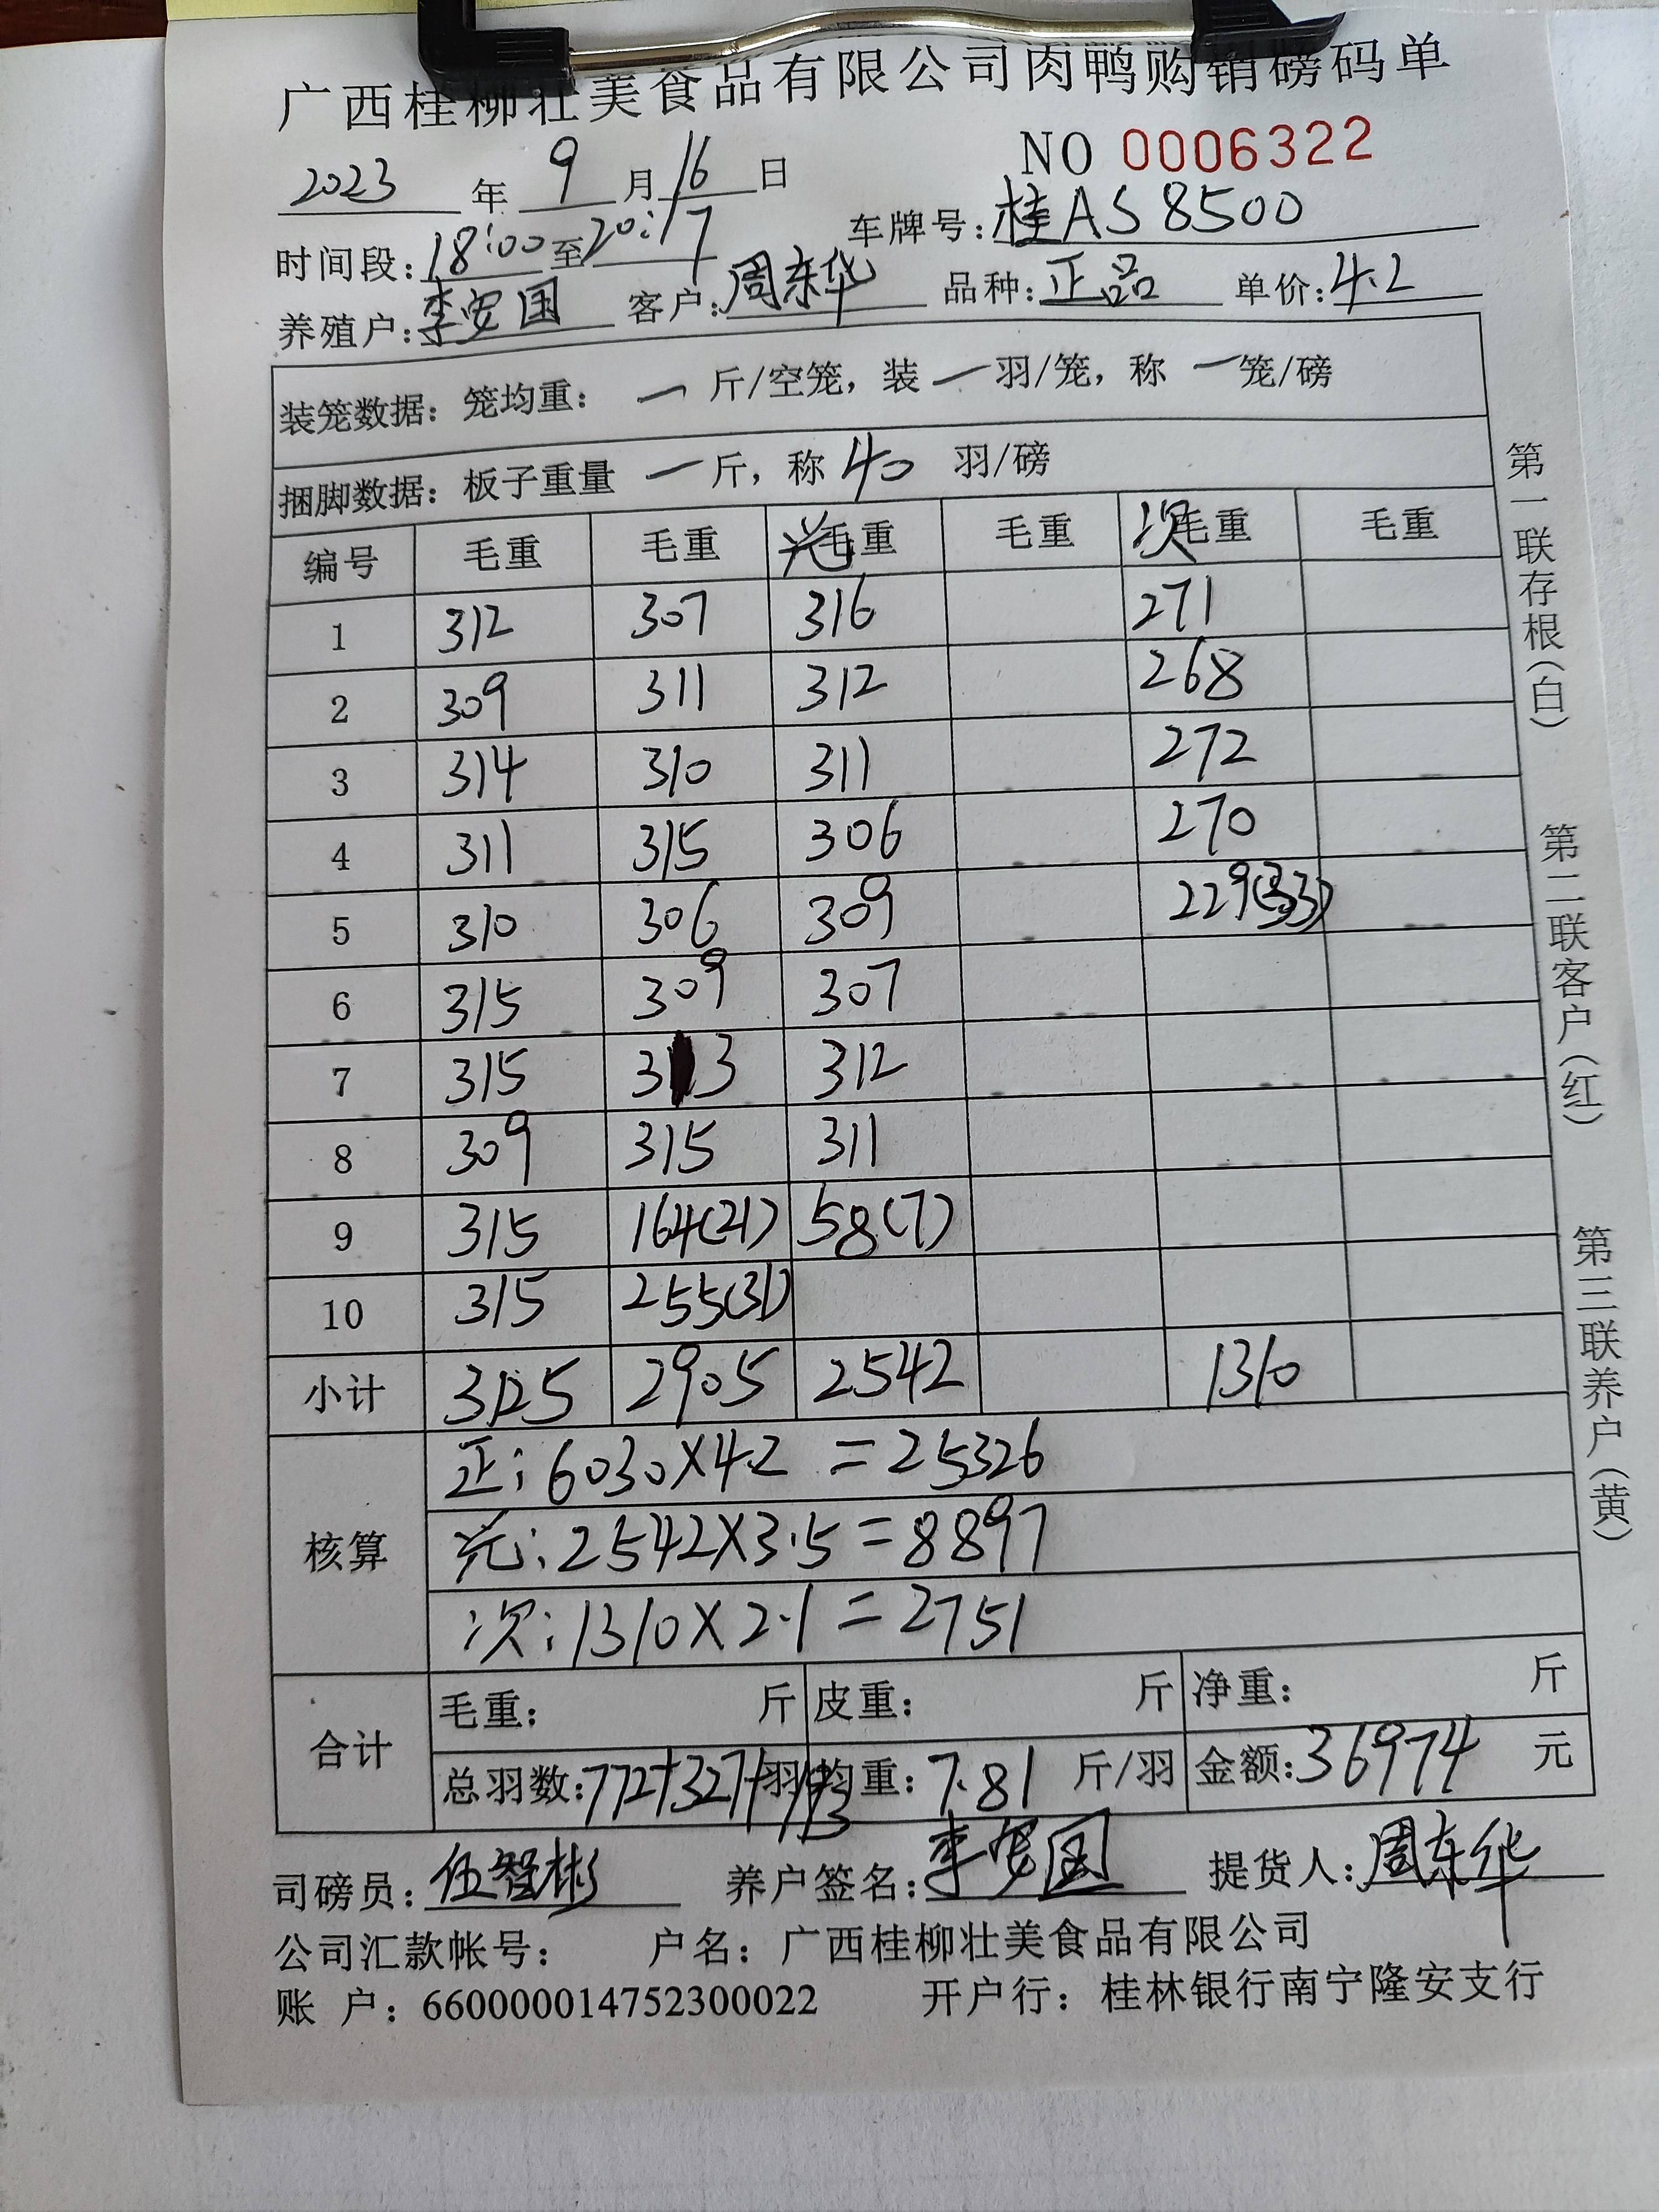 广西桂柳壮美食品有限公司肉鸭购销磅码单
NO 0006322
2023 年 9 月 16 日
时间段:18:00至20:17 车牌号:桂AS8500
养殖户:李安国 客户:周东华 品种:正品 单价:4.2
装笼数据: 笼均重: 一 斤/空笼, 装 一 羽/笼, 称 一 笼/磅
捆脚数据: 板子重量 一 斤, 称 40 羽/磅
编号 毛重 毛重 毛重 毛重 次毛重 毛重
1 312 307 316 271
2 309 311 312 268
3 314 310 311 272
4 311 315 306 270
5 310 306 309 229(33)
6 315 309 307
7 315 313 312
8 309 315 311
9 315 164(21) 58(7)
10 315 255(31)
小计 3125 2905 2542 1310
核算
正: 6030×4.2 =25326
: 2542×3.5=8897
次: 1310×2.1=2751
合计
毛重: 斤 皮重: 斤 净重: 斤
总羽数:772+327+193 羽 均重: 7.81 斤/羽 金额:36974 元
司磅员: 伍智彬 养户签名: 李安国 提货人: 周东华
公司汇款帐号: 户名: 广西桂柳壮美食品有限公司
账 户: 660000014752300022 开户行: 桂林银行南宁隆安支行
第一联存根(白) 第二联客户(红) 第三联养户(黄)